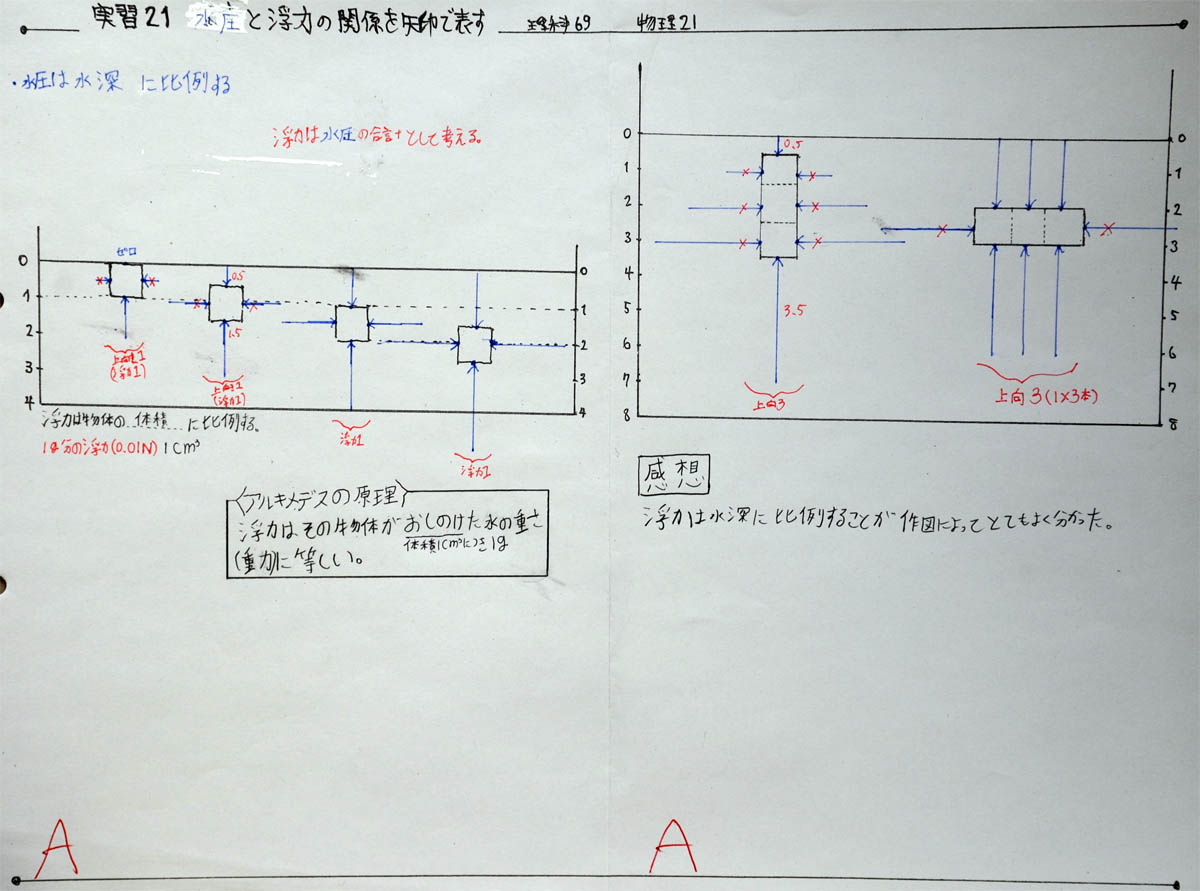 実習21 水圧と浮力の関係を矢印で表す 理科69 物理21
・水圧は水深 に比例する
浮力は水圧の合計として考える。
ゼロ
0
1
2
3
4
0.5
1.5
0
1
2
3
4
上向き1
(浮力1)
上向き1
(浮力1)
浮力1
浮力1
浮力は物体の 体積 に比例する。
1g分の浮力(0.01N) 1cm³
アルキメデスの原理
浮力はその物体がおしのけた水の重さ
体積1cm³につき1g
(重力)に等しい。
A
0
1
2
3
4
5
6
7
8
0.5
3.5
上向3
上向3(1×3本)
0
1
2
3
4
5
6
7
8
感想
浮力は水深に比例することが作図によってとてもよく分かった。
A